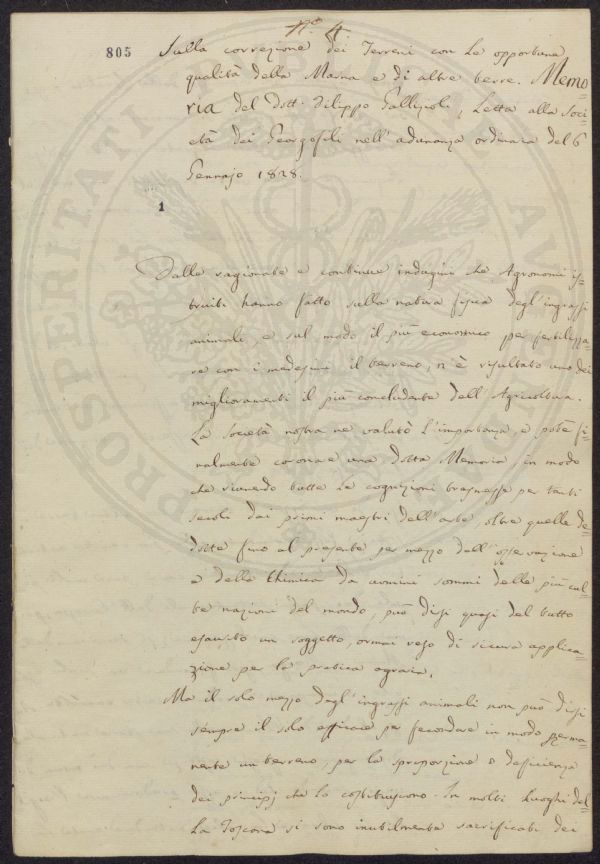 N.° 4
805
Sulla correzione dei Terreni con le opportune
qualità della Marna e di altre terre. Memo=
ria del Dott. Filippo Gallizioli, Letta alla Soci=
età dei Georgofili nell'adunanza ordinaria del 6
Gennajo 1828.
1
Dalle ragionate e continue indagini che Agronomi is=
truiti hanno fatto sulla natura fisica degl'ingrassi
animali, e sul modo il più economico per fertilizza=
re con i medesimi il terreno, n'è risultato uno dei
miglioramenti il più concludente dell'Agricoltura.
La Società nostra ne valutò l'importanza, e potè fi=
nalmente coronare una dotta Memoria, in modo
che riunendo tutte le cognizioni trasmesse per tanti
secoli dai primi maestri dell'arte, oltre quelle de=
dotte fino al presente per mezzo dell'osservazione
e della Chimica da uomini sommi delle più cul=
te nazioni del mondo, può dirsi quasi del tutto
esaurito un soggetto, ormai reso di sicura applica=
zione per la pratica agraria.
Ma il solo mezzo degl'ingrassi animali non può dirsi
sempre il solo efficace per fecondare in modo perma=
nente un terreno, per la sproporzione o deficienza
dei principj che lo costituiscono. In molti luoghi del=
la Toscana si sono inutilmente sacrificati dei
PROSPERITATI PUBLICAE AUGENDAE